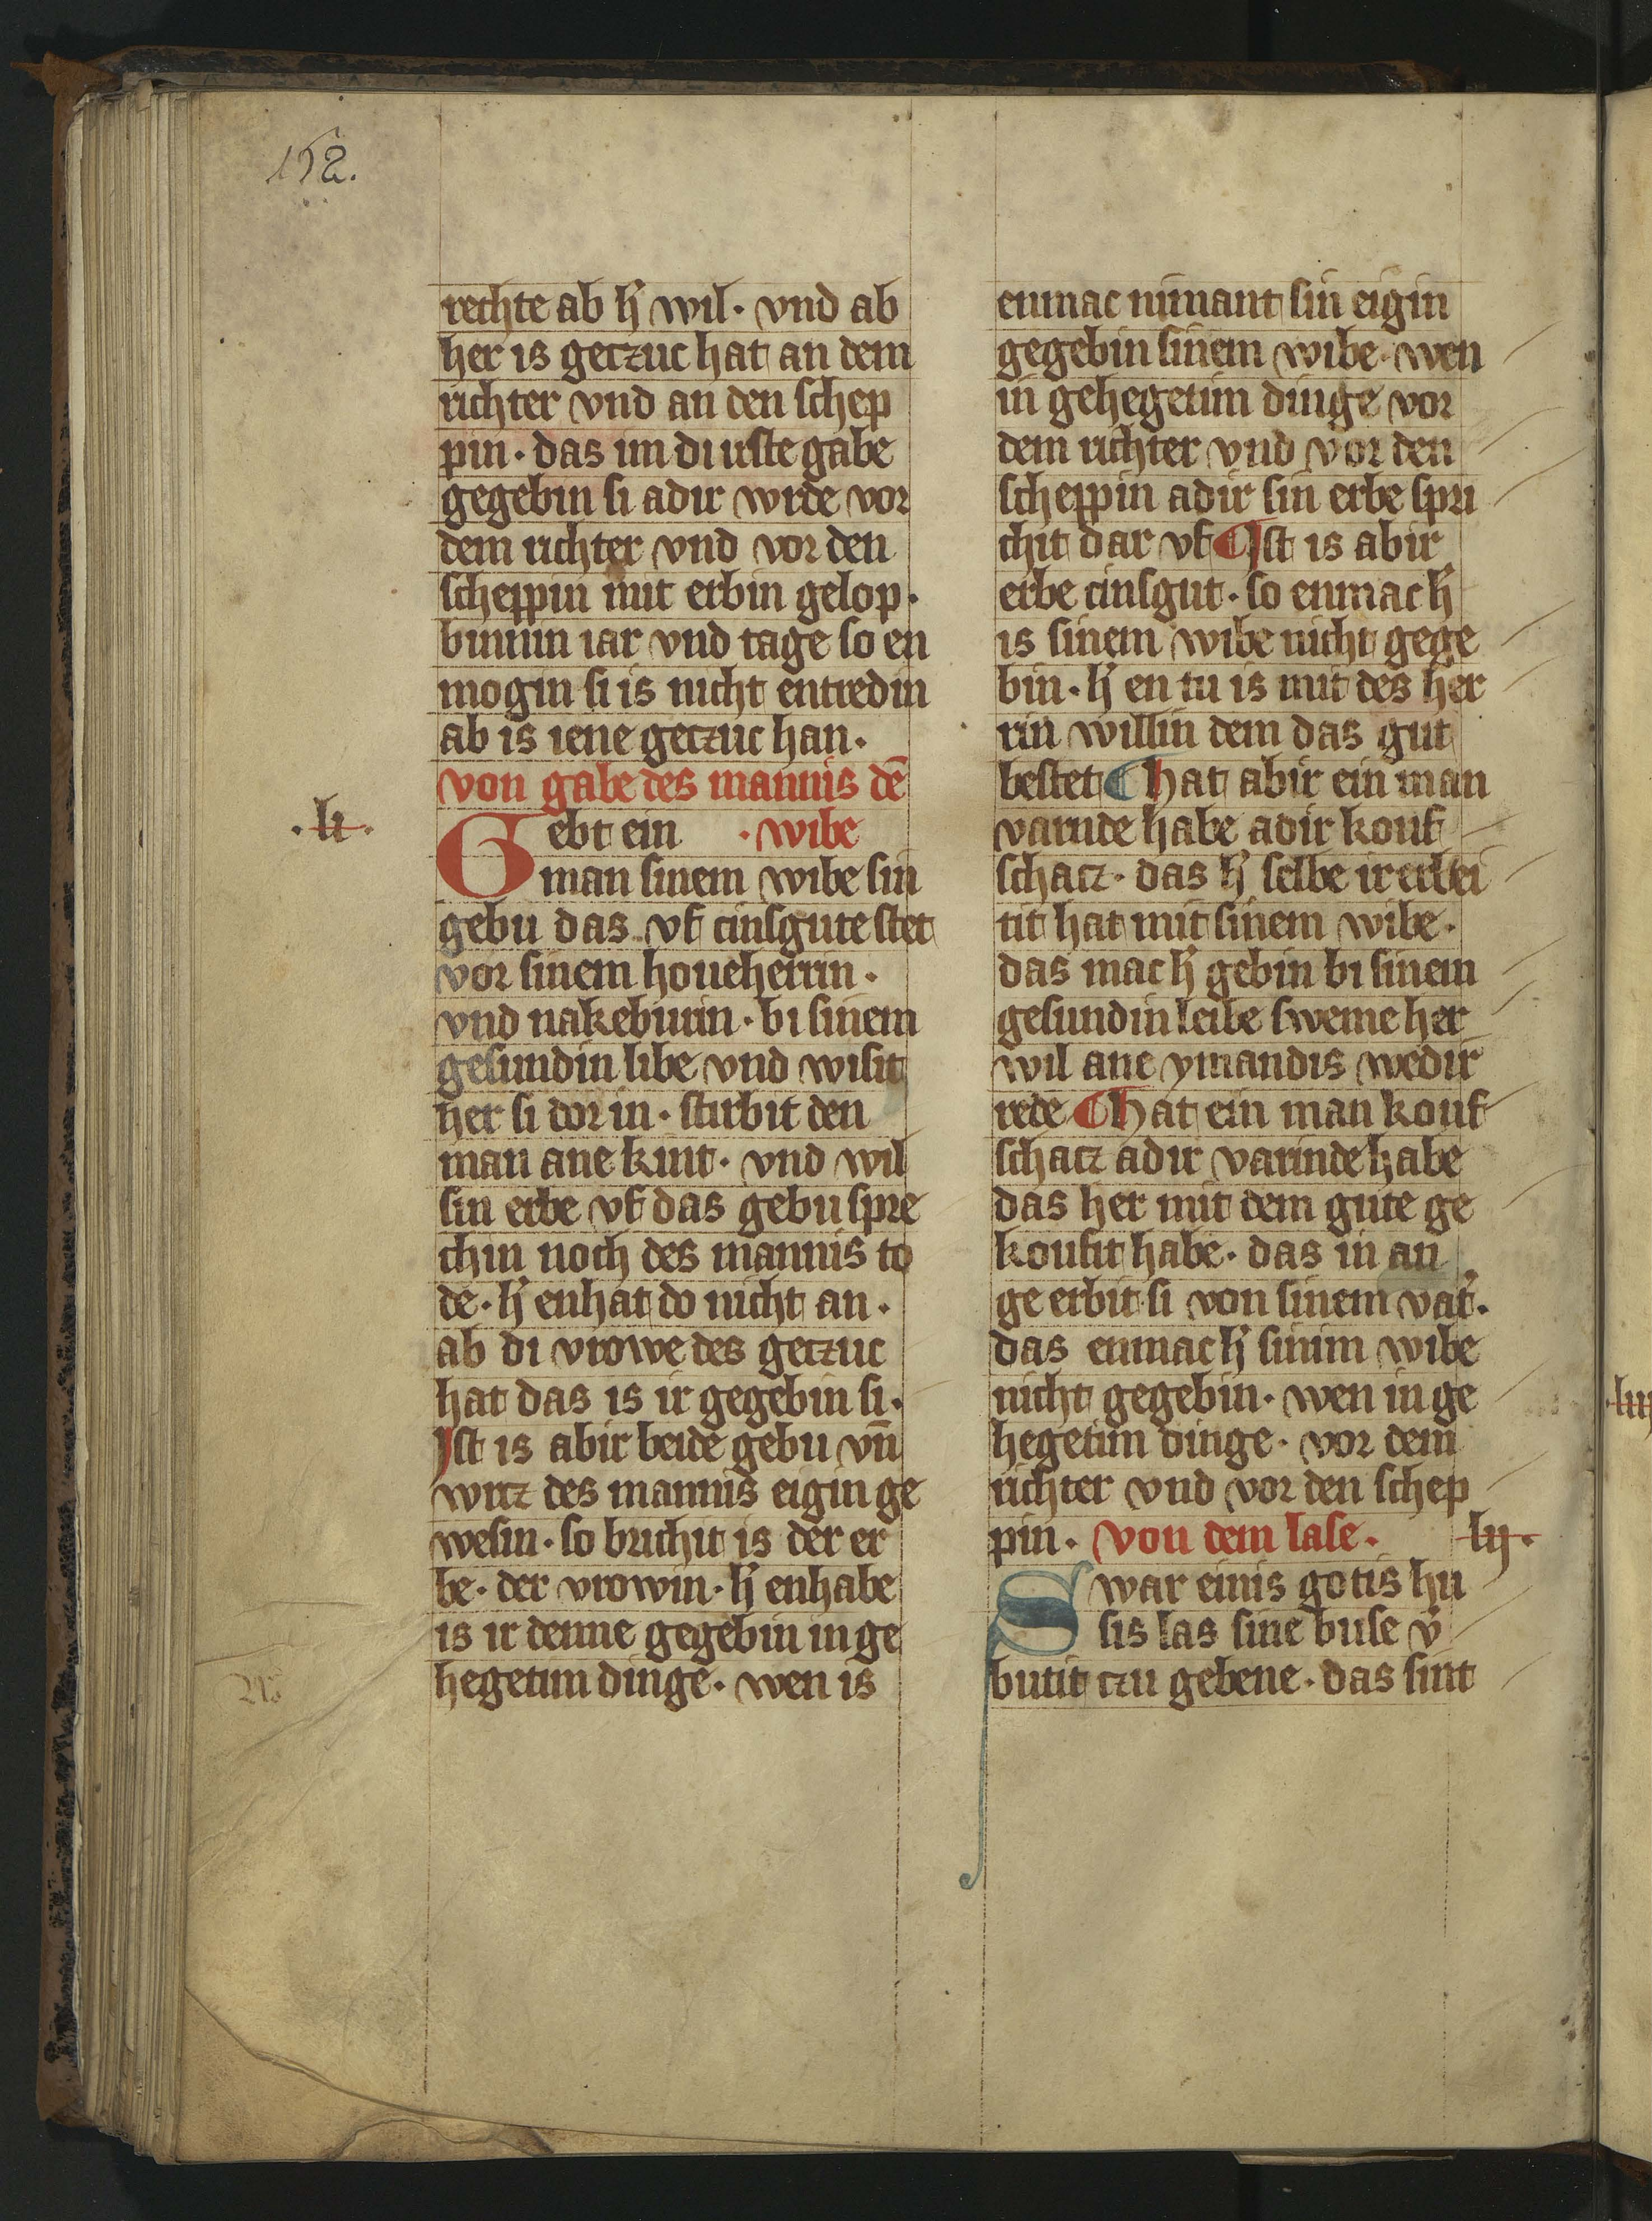 152.
rechte ab h̄ wil· vnd ab
her is getzuc hat an dem
richter vnd an den schep
pin· das im di irste gabe
gegebin si adir wrde vor
dem richter vnd vor den
scheppin mit erbin gelop·
binnin iar vnd tage so en
mogin si is nicht entredin
ab is iene getzuc han·
von gabe des mannis dē
·li·
Gebt ein ·wibe
man sinem wibe sin
gebu das vf cinsgute stet
vor sinem houeherrin·
vnd nakeburin· bi sinem
gesundin libe vnd wisit
her si dor in· stirbit den
man ane kint· vnd wil
sin erbe vf das gebu spre
chin noch des mannis to
de· h̄ enhat do nicht an·
ab di vrowe des getzuc
hat das is ir gegebin si·
Ist is abir beide gebu vn̄
wrtz des mannis eigin ge
wesin· so brichit is der er
be· der vrowin· h̄ enhabe
is ir denne gegebin in ge
hegetim dinge· wen is
enmac nimant sin eigin
gegebin sinem wibe· wen
in gehegetim dinge vor
dem richter vnd vor den
scheppin adir sin erbe spri
chit dar vf ¶ Ist is abir
erbe cinsgut· so enmac h̄
is sinem wibe nicht gege
bin· h̄ en tu is mit des her
rin willin dem das gut
bestet ¶ hat abir ein man
varnde habe adir kouf
schatz· das h̄ selbe ir erbei
tit hat mit sinem wibe·
das mac h̄ gebin bi sinem
gesundin leibe sweme her
wil ane ymandis wedir
rede ¶ hat ein man kouf
schatz adir varinde habe
das her mit dem gute ge
koufit habe· das in an
ge erbit si von sinem vat̄·
das enmac h̄ sinim wibe
nicht gegebin· wen in ge
hegetim dinge· vor dem
richter vnd vor den schep
pin· von dem lase· lij·
Swar einis gotis hu
sis las sine buse v̄
butit czu gebene· das sint